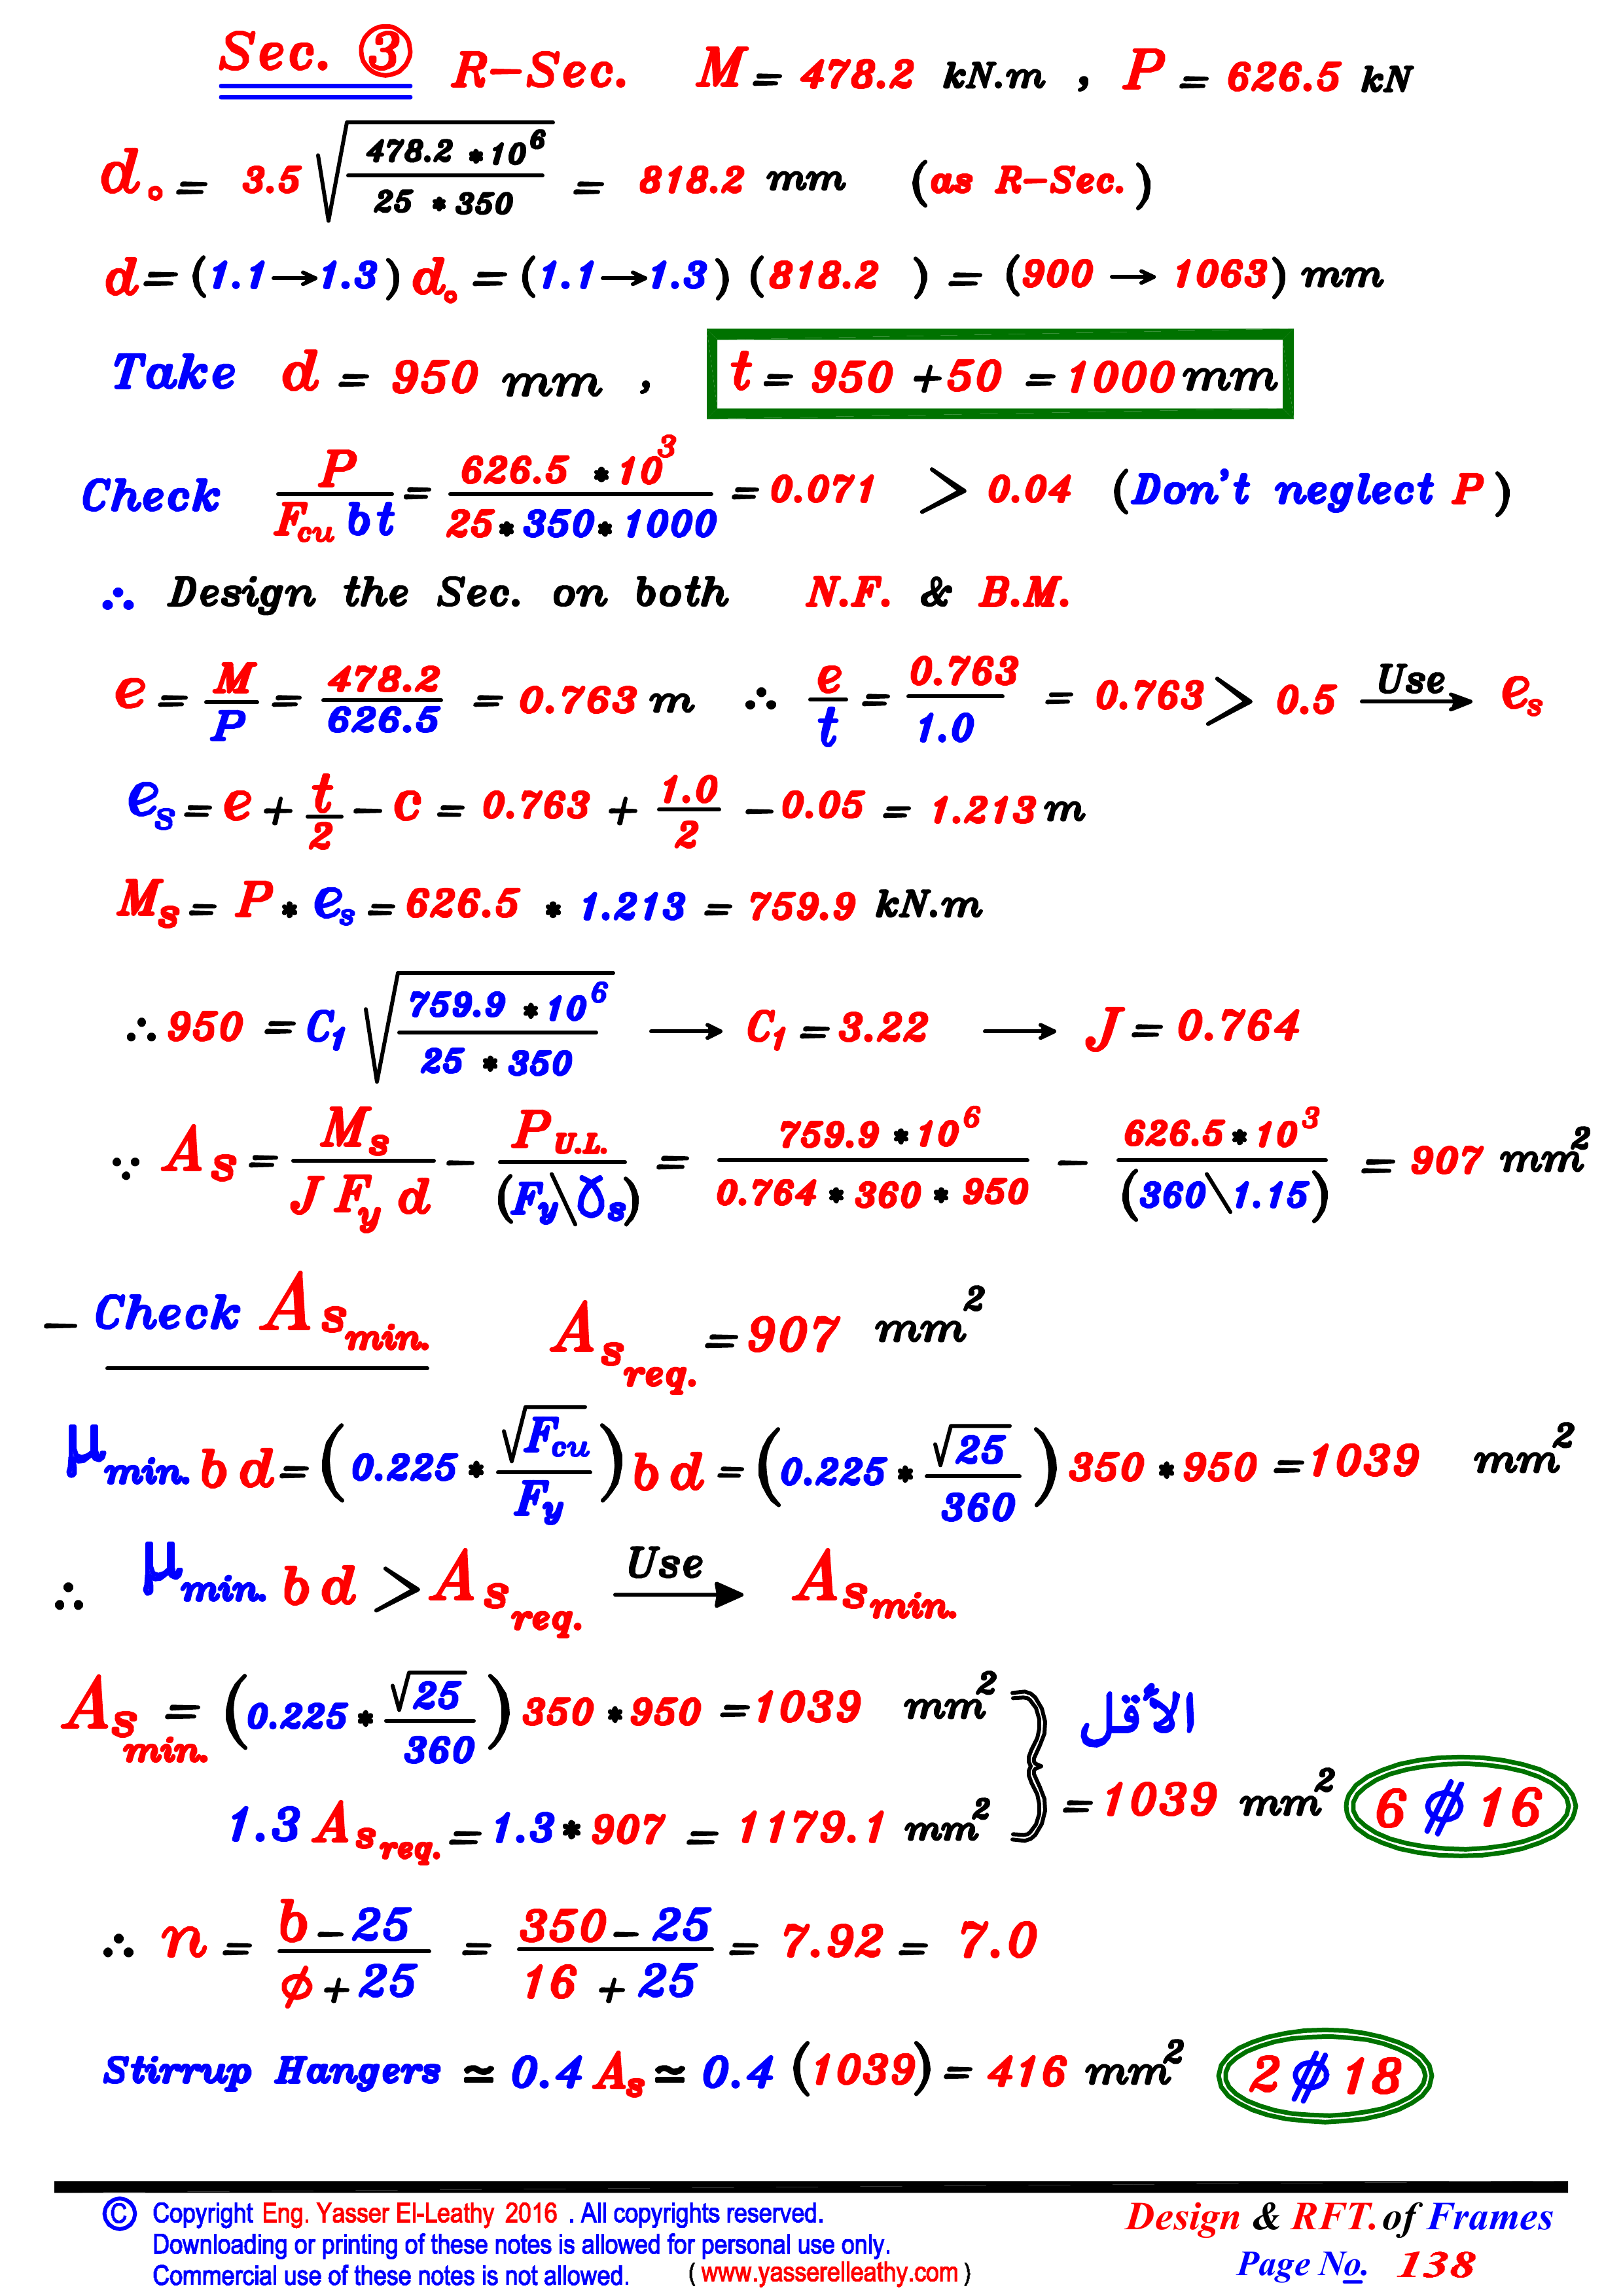 Sec. ③ R-Sec. M = 478.2 kN.m , P = 626.5 kN
d₀ = 3.5 √(478.2 * 10⁶ / 25 * 350) = 818.2 mm (as R-Sec.)
d = (1.1 → 1.3) d₀ = (1.1 → 1.3) (818.2 ) = (900 → 1063) mm
Take d = 950 mm , t = 950 + 50 = 1000 mm
Check P / F_cu b t = 626.5 * 10³ / 25 * 350 * 1000 = 0.071 > 0.04 (Don't neglect P)
∴ Design the Sec. on both N.F. & B.M.
e = M / P = 478.2 / 626.5 = 0.763 m ∴ e / t = 0.763 / 1.0 = 0.763 > 0.5 Use → e_s
e_s = e + t / 2 - c = 0.763 + 1.0 / 2 - 0.05 = 1.213 m
M_s = P * e_s = 626.5 * 1.213 = 759.9 kN.m
∴ 950 = C₁ √(759.9 * 10⁶ / 25 * 350) → C₁ = 3.22 → J = 0.764
∵ A_s = M_s / J F_y d - P_U.L. / (F_y \ ɣ_s) = 759.9 * 10⁶ / 0.764 * 360 * 950 - 626.5 * 10³ / (360 \ 1.15) = 907 mm²
- Check A_s min. A_s req. = 907 mm²
μ_min. b d = (0.225 * √F_cu / F_y) b d = (0.225 * √25 / 360) 350 * 950 = 1039 mm²
∴ μ_min. b d > A_s req. Use → A_s min.
A_s min. = (0.225 * √25 / 360) 350 * 950 = 1039 mm²
الأقل
1.3 A_s req. = 1.3 * 907 = 1179.1 mm² } = 1039 mm² 6 ⌀ 16
∴ n = b - 25 / φ + 25 = 350 - 25 / 16 + 25 = 7.92 = 7.0
Stirrup Hangers ≃ 0.4 A_s ≃ 0.4 (1039) = 416 mm² 2 ⌀ 18
© Copyright Eng. Yasser El-Leathy 2016 . All copyrights reserved.
Downloading or printing of these notes is allowed for personal use only.
Commercial use of these notes is not allowed. ( www.yasserelleathy.com )
Design & RFT. of Frames
Page No. 138